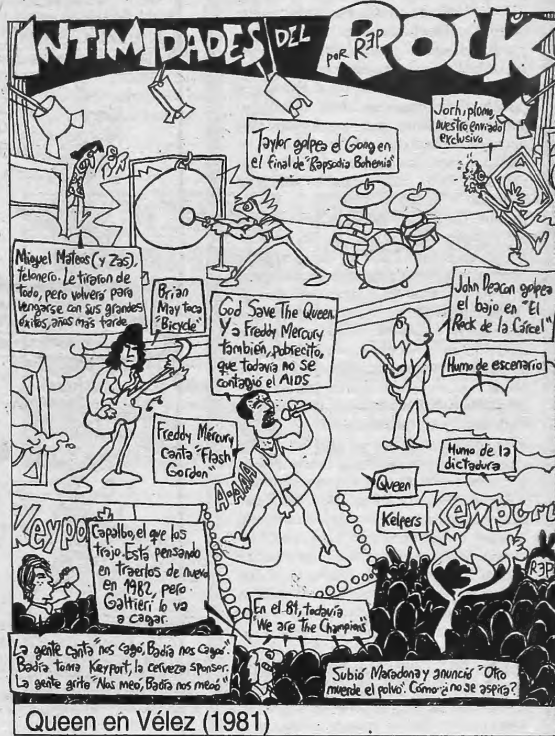 INTIMIDADES DEL ROCK
POR R3P
Jorh, plomo,
nuestro enviado
exclusivo
Taylor golpea el Gong en
el final de "Rapsodia Bohemia"
Miguel Mateos (y Zas),
telonero. Le tiraron de
todo, pero volverá para
vengarse con sus grandes
éxitos, años más tarde
Brian
May toca
"Bicycle"
God Save The Queen.
Y a Freddy Mercury
también, pobrecito,
que todavía no se
contagió el AIDS
John Deacon golpea
el bajo en "El
Rock de la Cárcel"
Humo de escenario
Freddy Mercury
canta "Flash
Gordon"
A-AAAA
Humo de la
dictadura
Queen
Kelpers
Keyport
Keyport
Capalbo, el que los
trajo. Está pensando
en traerlos de nuevo
en 1982, pero
Galtieri lo va
a cagar.
R3P
En el 81, todavía
"We are The Champions"
La gente canta "nos cagó, Badía nos cagó".
Badía toma Keyport, la cerveza sponsor.
La gente grita "Nos meó, Badía nos meó"
Subió Maradona y anunció "Otro
muerde el polvo". Cómo ¿no se aspira?
Queen en Vélez (1981)